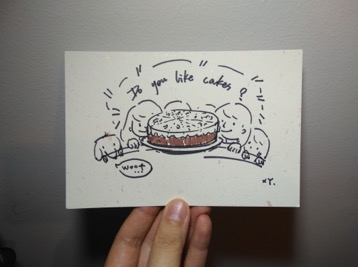 Do you like cakes?
woof
...
*Y.